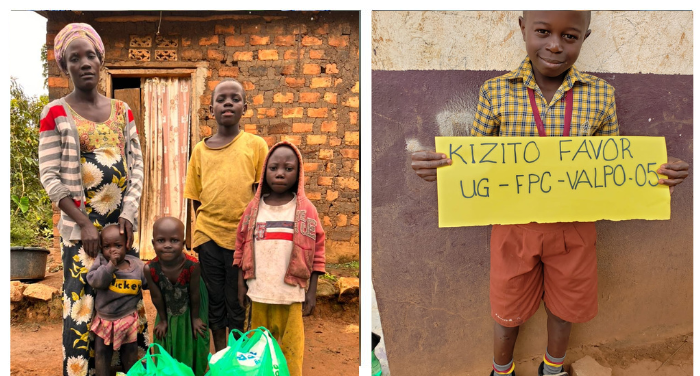 KIZITO FAVOR
UG-FPC-VALPO-05